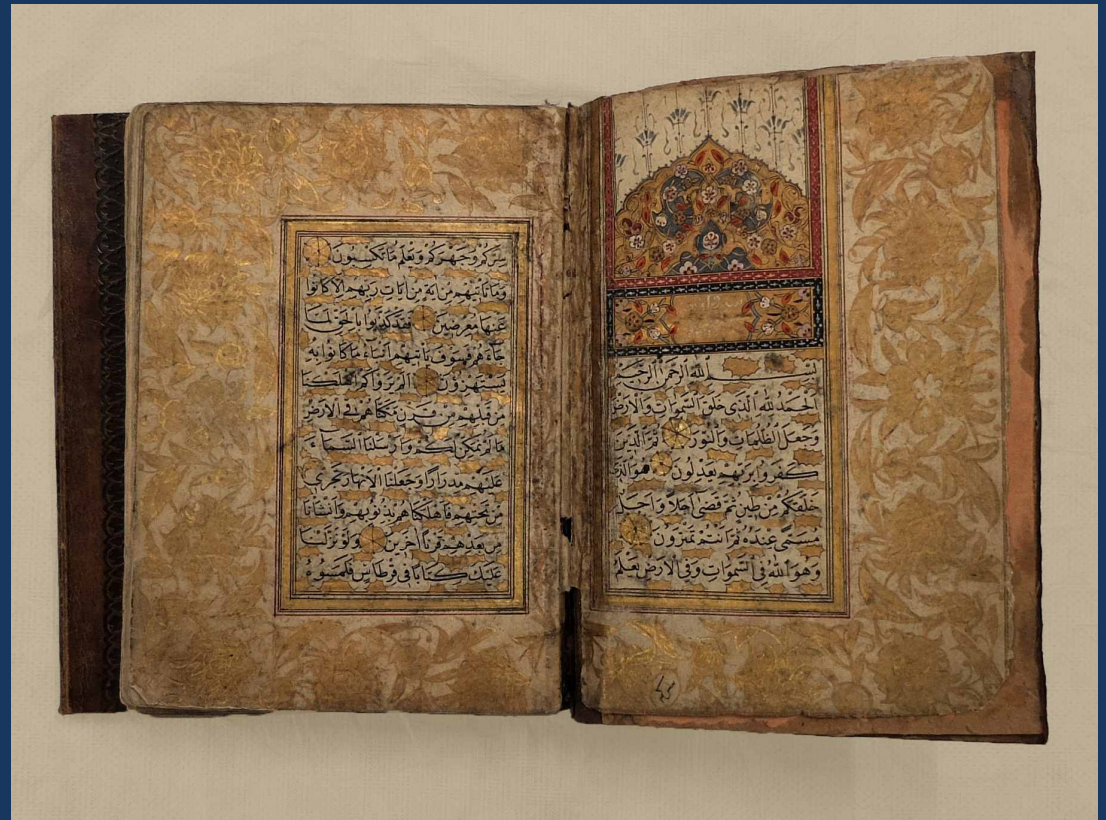 بسم الله الرحمن الرحيم
الحمد لله الذى خلق السموات والارض
وجعل الظلمات والنور ثم الذين
كفروا بربهم يعدلون هو الذى
خلقكم من طين ثم قضى اجلا واجل
مسمى عنده ثم انتم تمترون
وهو الله فى السموات وفى الارض يعلم
سركم وجهركم ويعلم ما تكسبون
وما تاتيهم من اية من ايات ربهم الا كانوا
عنها معرضين فقد كذبوا بالحق لما
جاءهم فسوف ياتيهم انباء ما كانوا به
يستهزؤن الم يروا كم اهلكنا
من قبلهم من قرن مكناهم فى الارض
ما لم نمكن لكم وارسلنا السماء
عليهم مدرارا وجعلنا الانهار تجرى
من تحتهم فاهلكناهم بذنوبهم وانشانا
من بعدهم قرنا اخرين ولو نزلنا
عليك كتابا فى قرطاس فلمسوه